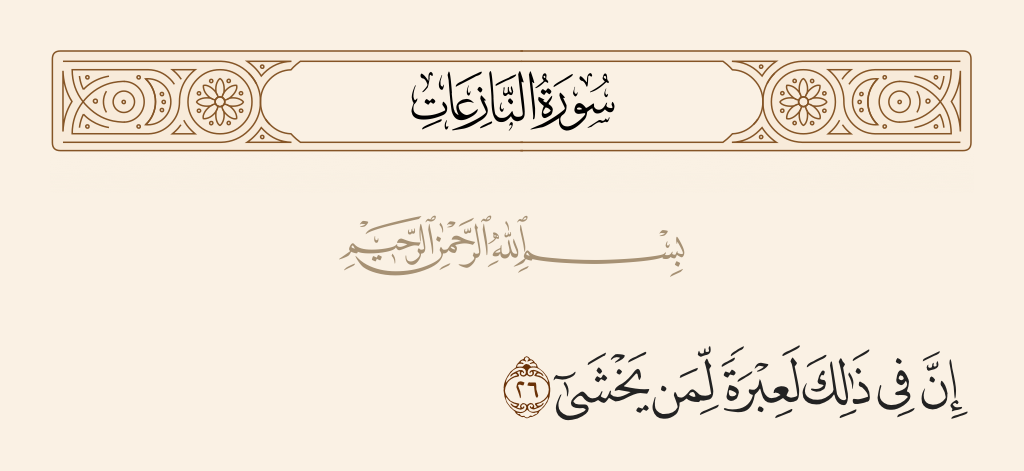 سُورَةُ النَّازِعَاتِ
بِسْمِ ٱللَّهِ ٱلرَّحْمَٰنِ ٱلرَّحِيمِ
إِنَّ فِى ذَٰلِكَ لَعِبْرَةً لِّمَن يَخْشَىٰٓ ٢٦